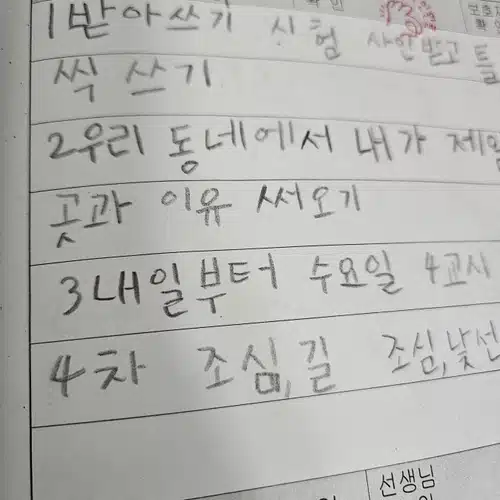 확인
보호자
확인
1받아쓰기 시험 사인받고 틀
씩 쓰기
2우리 동네에서 내가 제일
곳과 이유 써오기
3내일부터 수요일 4교시
4차 조심,길 조심,낯선
선생님